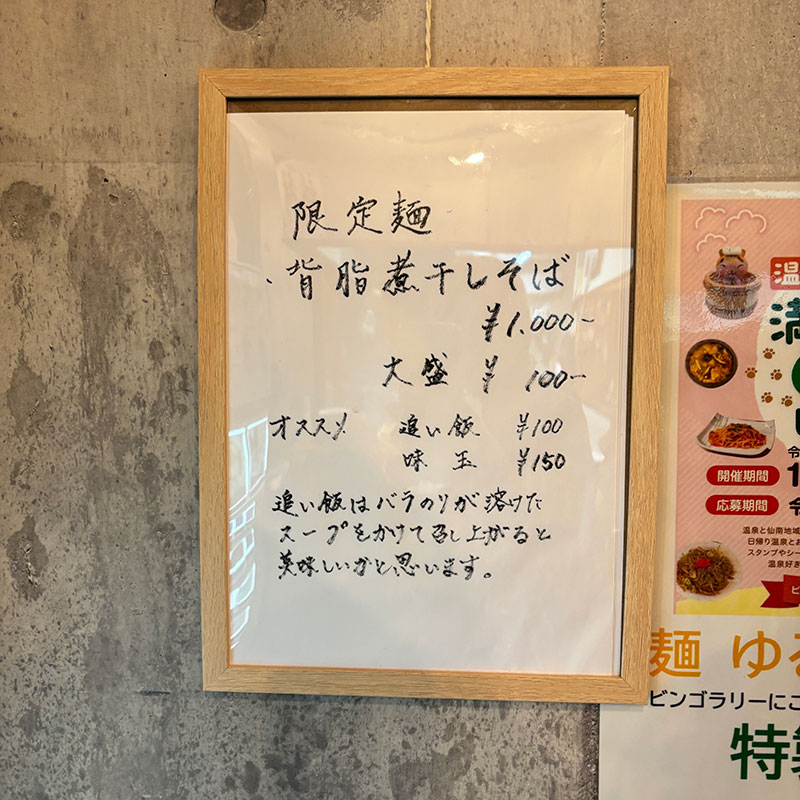 限定麺
背脂煮干しそば
¥1.000-
大盛 ¥100-
オススメ 追い飯 ¥100
味玉 ¥150
追い飯はバラのりが溶けた
スープをかけて召し上がると
美味しいかと思います。
温
満
開催期間
応募期間
令
温泉と仙南地域
日帰り温泉と
スタンプやシー
温泉好き
麺 ゆ
ビンゴラリーにこ
特製